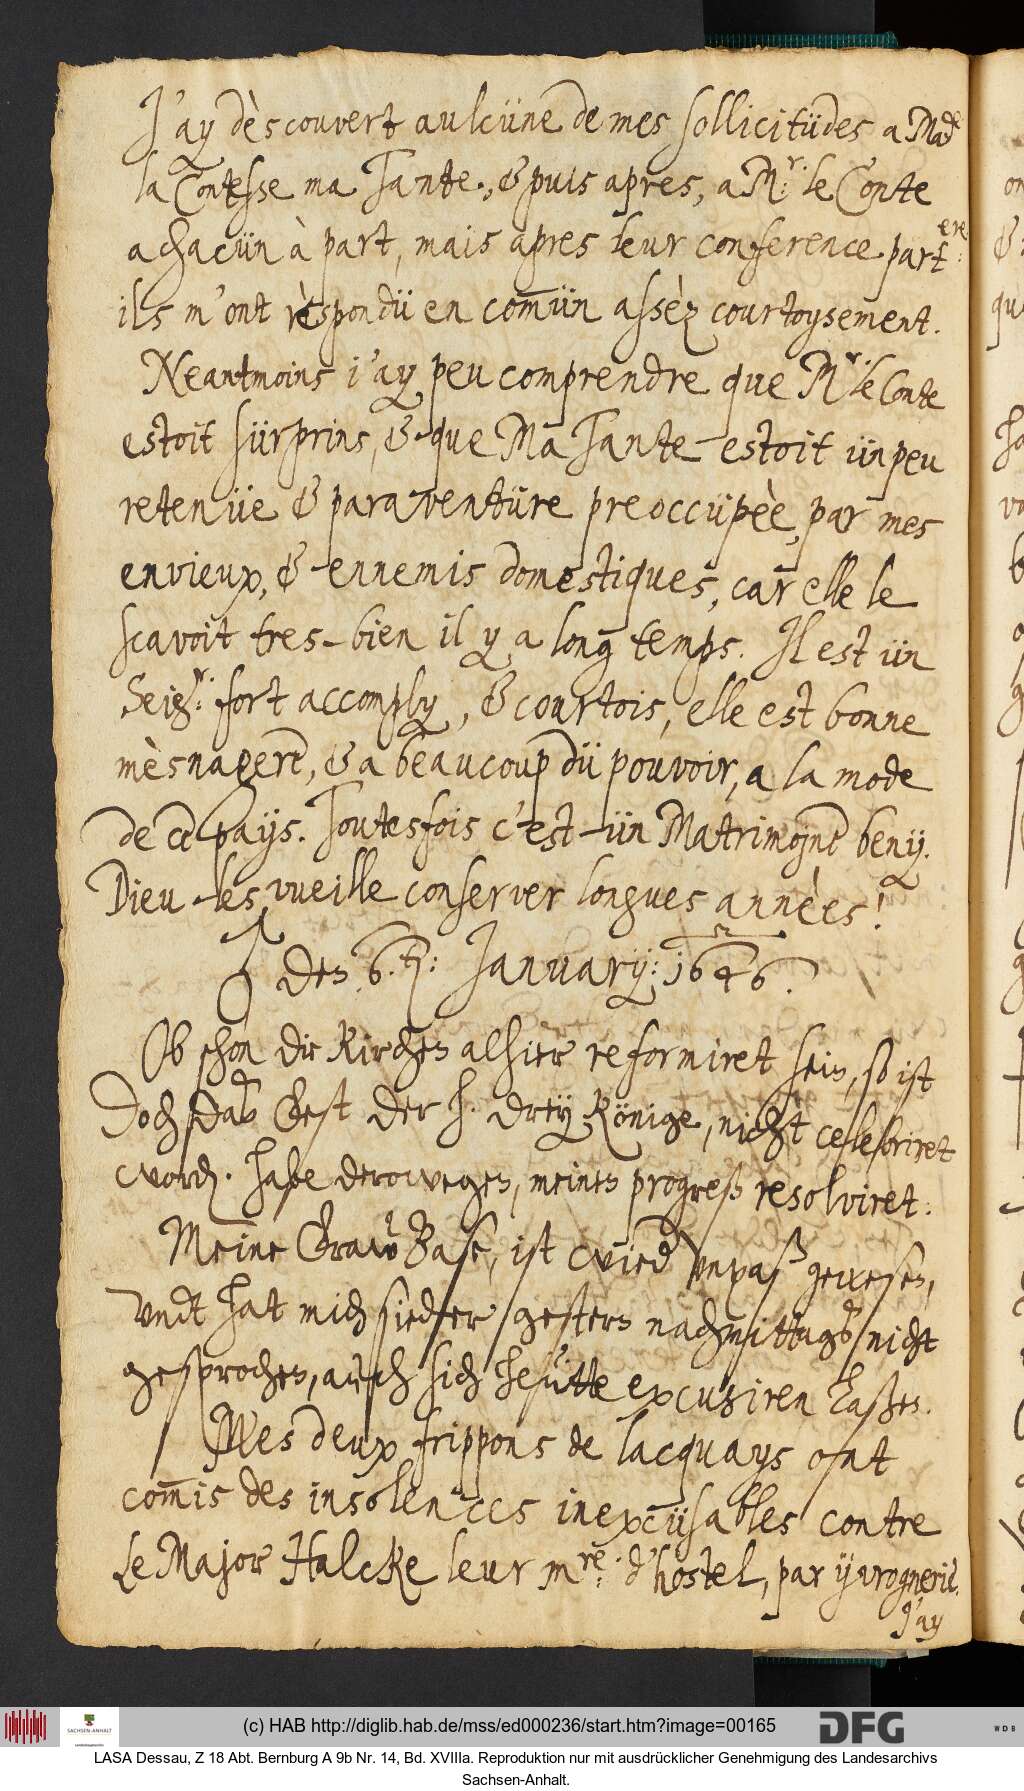 J'ay dèscouvert aulcüne de mes sollicitüdes a Mad.e
la Contesse ma Tante., & puis apres, a M.r le Conte
a chacün à part, mais apres leur conference part.ere
ils m'ont rèspondü en com̄ün assèz courtoysement.
Neantmoins i'ay peu comprendre que M.r le Conte
estoit sürprins, & que Ma Tante estoit ün peu
retenüe & paraventüre preoccüpèe, par mes
envieux, & ennemis domestiques, car elle le
scavoit tres-bien il y a long temps. Il est ün
Seig.r fort accomply, & courtois, elle est bonne
mèsnagere, & a beaucoup dü pouvoir, a la mode
de ce pays. Toutesfois c'est ün Matrimoyne beny.
Dieu les vueille conserver longues annèes!
♂ den 6.ten: January: 1646.
Ob schon die Kirchen alhier reformiret sein, so ist
doch daß Fest der H. drey Könige, nicht celebriret
word. habe derowegen, meinen progreß resolviret.
Meine Fraw Base, ist wied unpaß gewesen,
undt hat mich siedter gestern nachmittagß nicht
gesprochen, auch sich heütte excusiren laßen.
Mes deux frippons de lacquays ont
com̄is des insolences inexcüsables contre
le Major Halcke leur m.re d'hostel, par yvrognerie.
J'ay
(c) HAB http://diglib.hab.de/mss/ed000236/start.htm?image=00165
SACHSEN-ANHALT
DFG
WDB
LASA Dessau, Z 18 Abt. Bernburg A 9b Nr. 14, Bd. XVIIIa. Reproduktion nur mit ausdrücklicher Genehmigung des Landesarchivs
Sachsen-Anhalt.